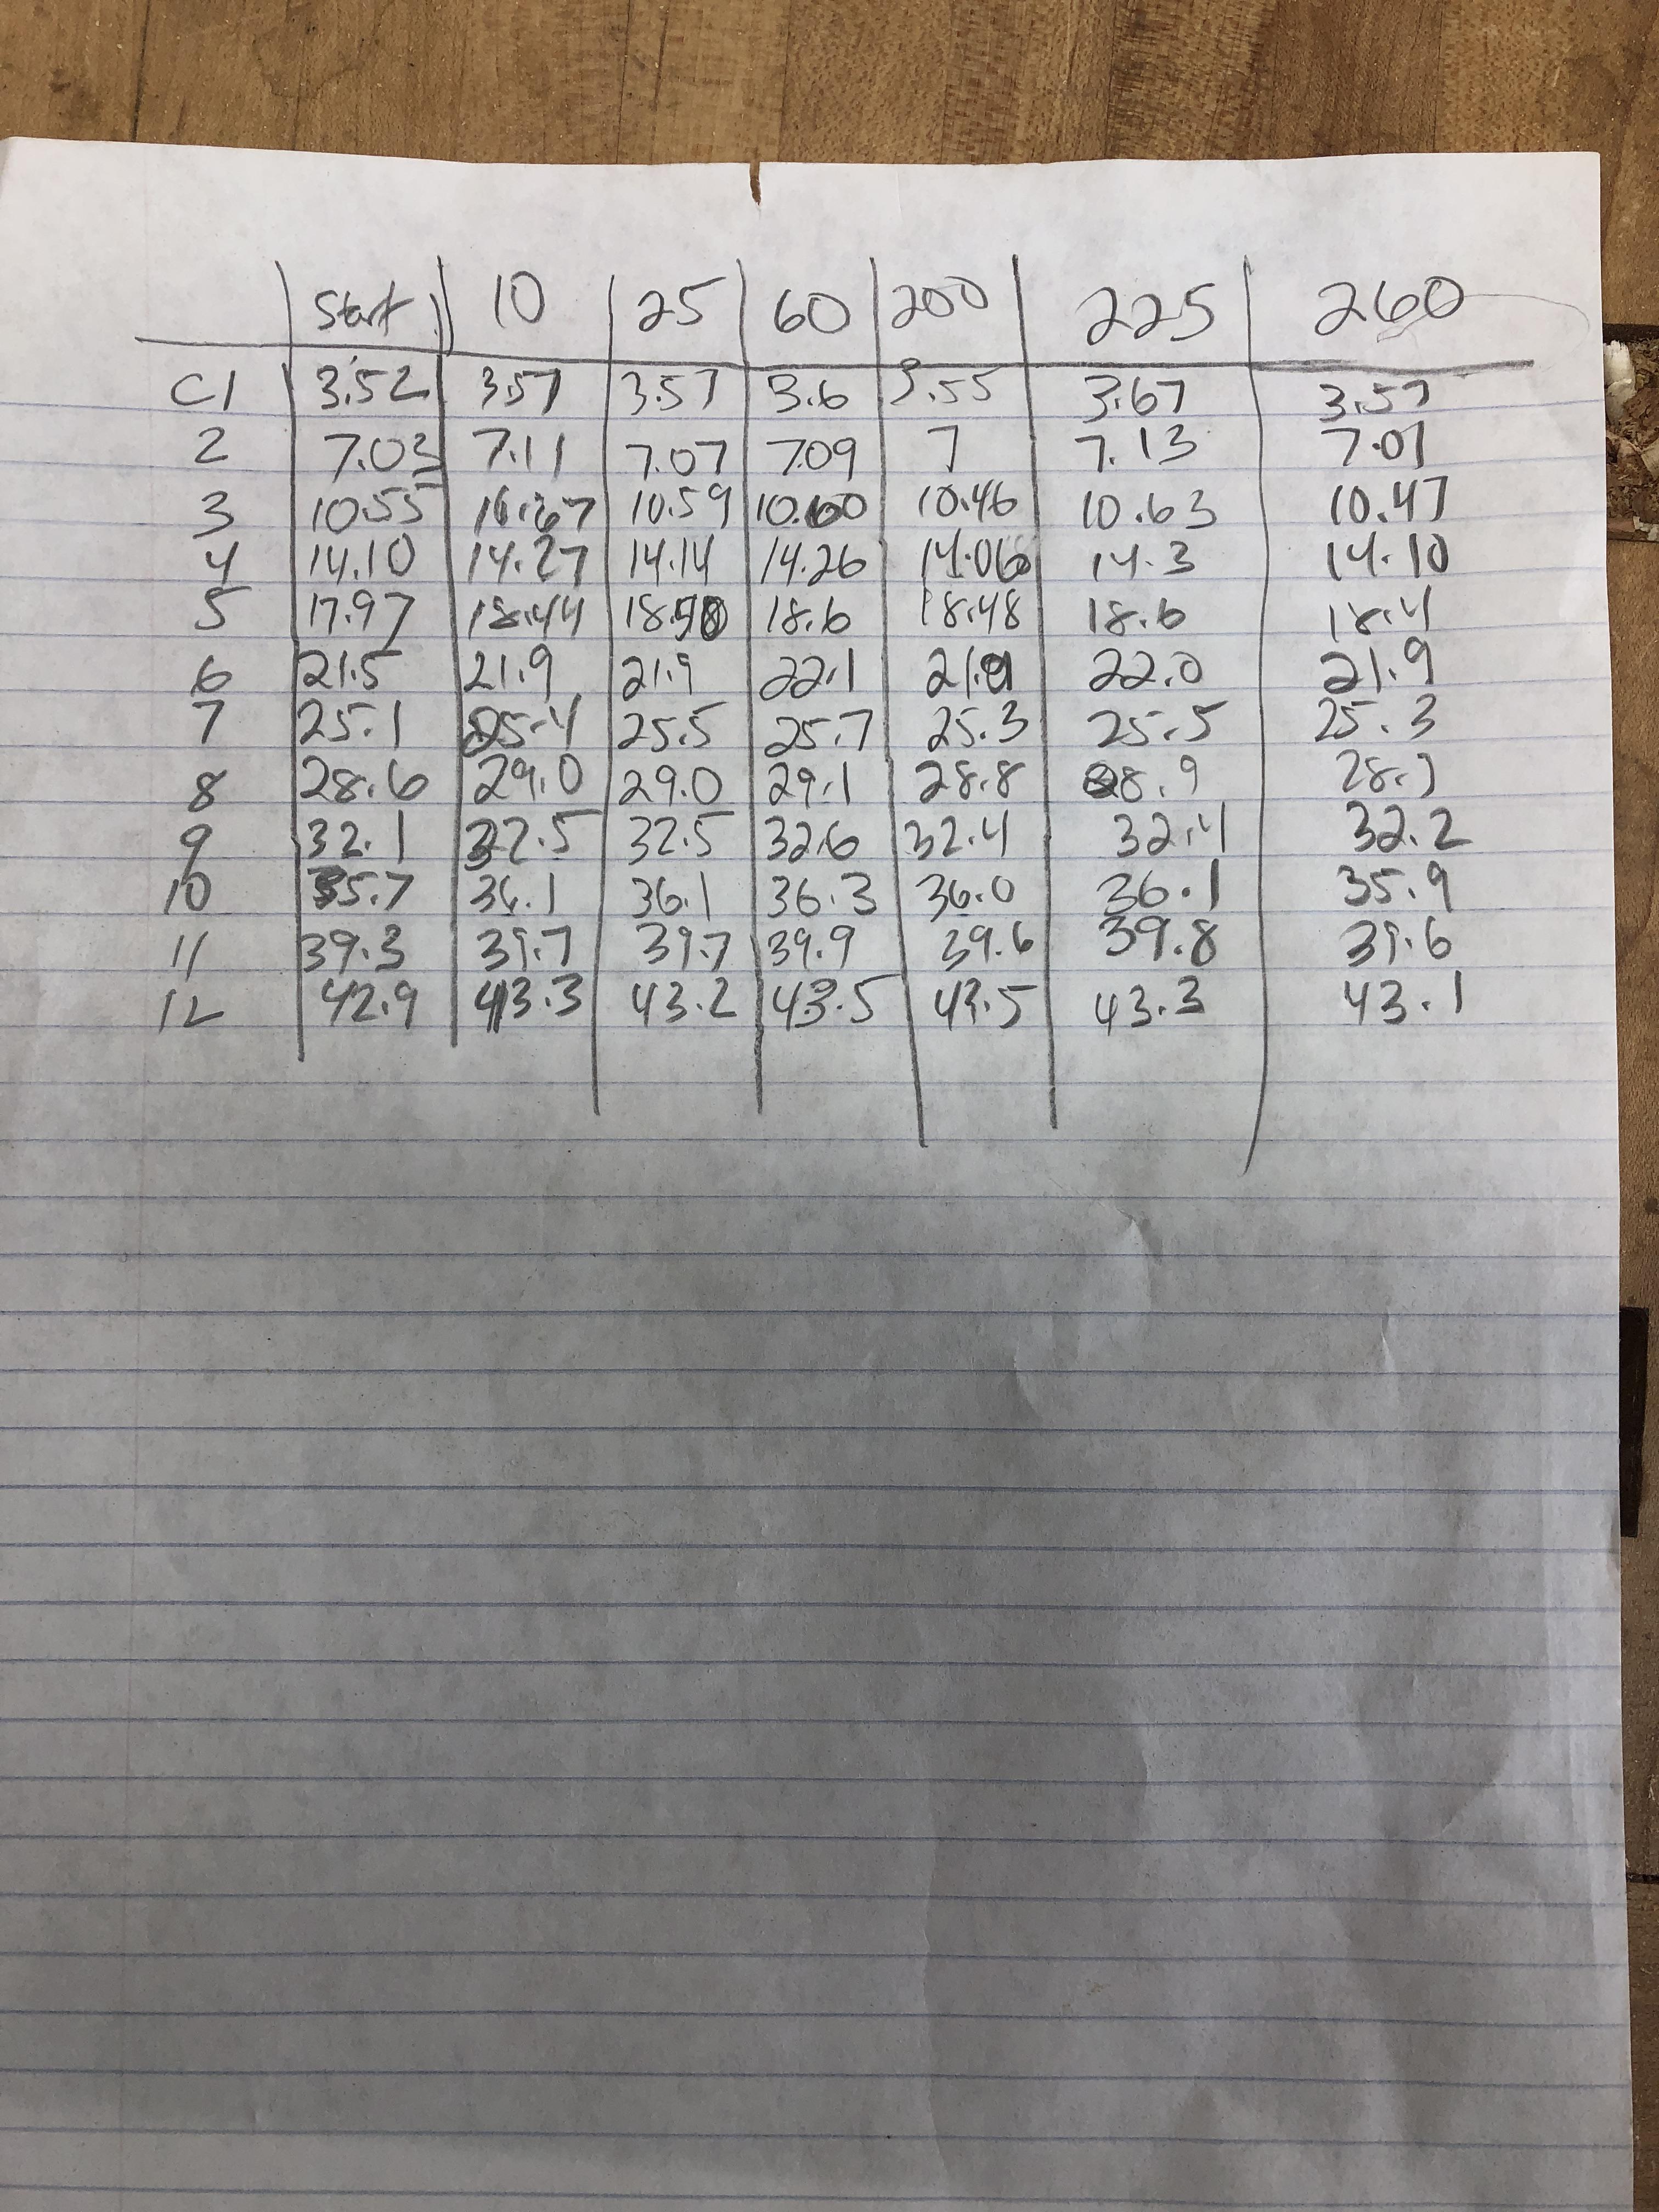 Start 10 25 60 200 225 260
C1 3.52 3.57 3.57 3.6 3.55 3.67 3.57
2 7.03 7.11 7.07 7.09 7 7.13 7.07
3 10.55 10.67 10.59 10.60 10.46 10.63 10.47
4 14.10 14.27 14.14 14.26 14.06 14.3 14.10
5 17.97 18.44 18.6 18.48 18.6 18.4
6 21.5 21.9 21.9 22.1 21.9 22.0 21.9
7 25.1 25.4 25.5 25.7 25.3 25.5 25.3
8 28.6 29.0 29.0 29.1 28.8 28.9 28.7
9 32.1 32.5 32.5 32.6 32.4 32.4 32.2
10 35.7 36.1 36.1 36.3 36.0 36.1 35.9
11 39.3 39.7 39.7 39.9 39.6 39.8 39.6
12 42.9 43.3 43.2 43.5 43.5 43.3 43.1